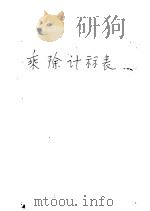 研狗
乘除计算表
mtoou.info